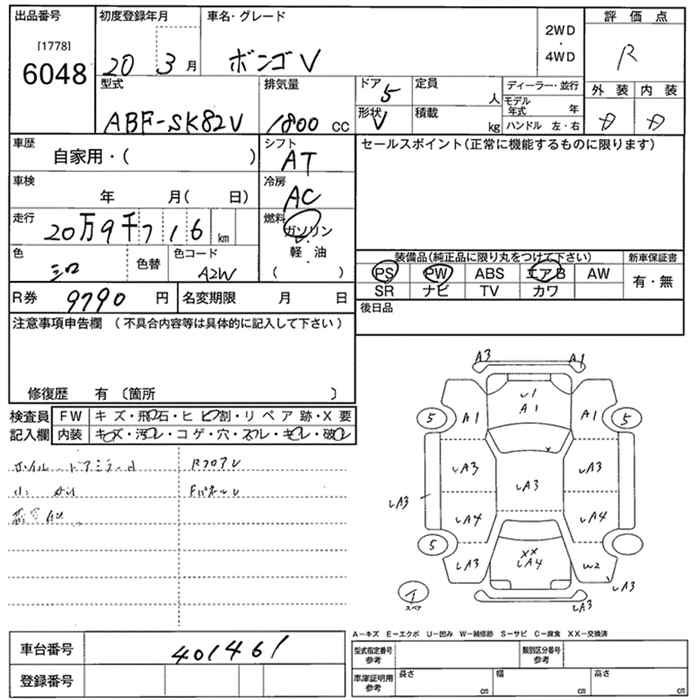 出品番号 初度登録年月 車名・グレード 評価点
[1778]
6048
20 3月 ボンゴV
2WD
・
4WD
R
型式 排気量 ドア 5 定員 人 ディーラー・並行 外装 内装
ABF-SK82V 1800 CC
形状 V 積載 kg モデル年式 年
ハンドル 左・右
車歴 自家用・( ) シフト AT
セールスポイント(正常に機能するものに限ります)
車検 年 月( 日) 冷房 AC
走行 20万9千716 km 燃料 ガソリン
・
軽・油
( )
色 シロ 色替 色コード A2W
装備品(純正品に限り丸をつけて下さい) 新車保証書
PS PW ABS エアB AW 有・無
SR ナビ TV カワ
R券 9790 円 名変期限 月 日
後日品
注意事項申告欄 (不具合内容等は具体的に記入して下さい)
修復歴 有 〔箇所 〕
検査員 FW キズ・飛石・ヒビ割・リペア跡・X要
記入欄 内装 キズ・汚レ・コゲ・穴・スレ・キレ・破レ
A3 A1
U1
A1
5 A1 A1 5
UA3 UA3 UA3
UA3 UA3
UA4 UA4
5 XX
UA3 UA4 W2
UA3
スペア UA3
A−キズ E−エクボ U−凹み W−補修跡 S−サビ C−腐食 XX−交換済
車台番号 401461
型式指定番号 参考 類別区分番号 参考
登録番号
車庫証明用 参考 長さ cm 幅 cm 高さ cm